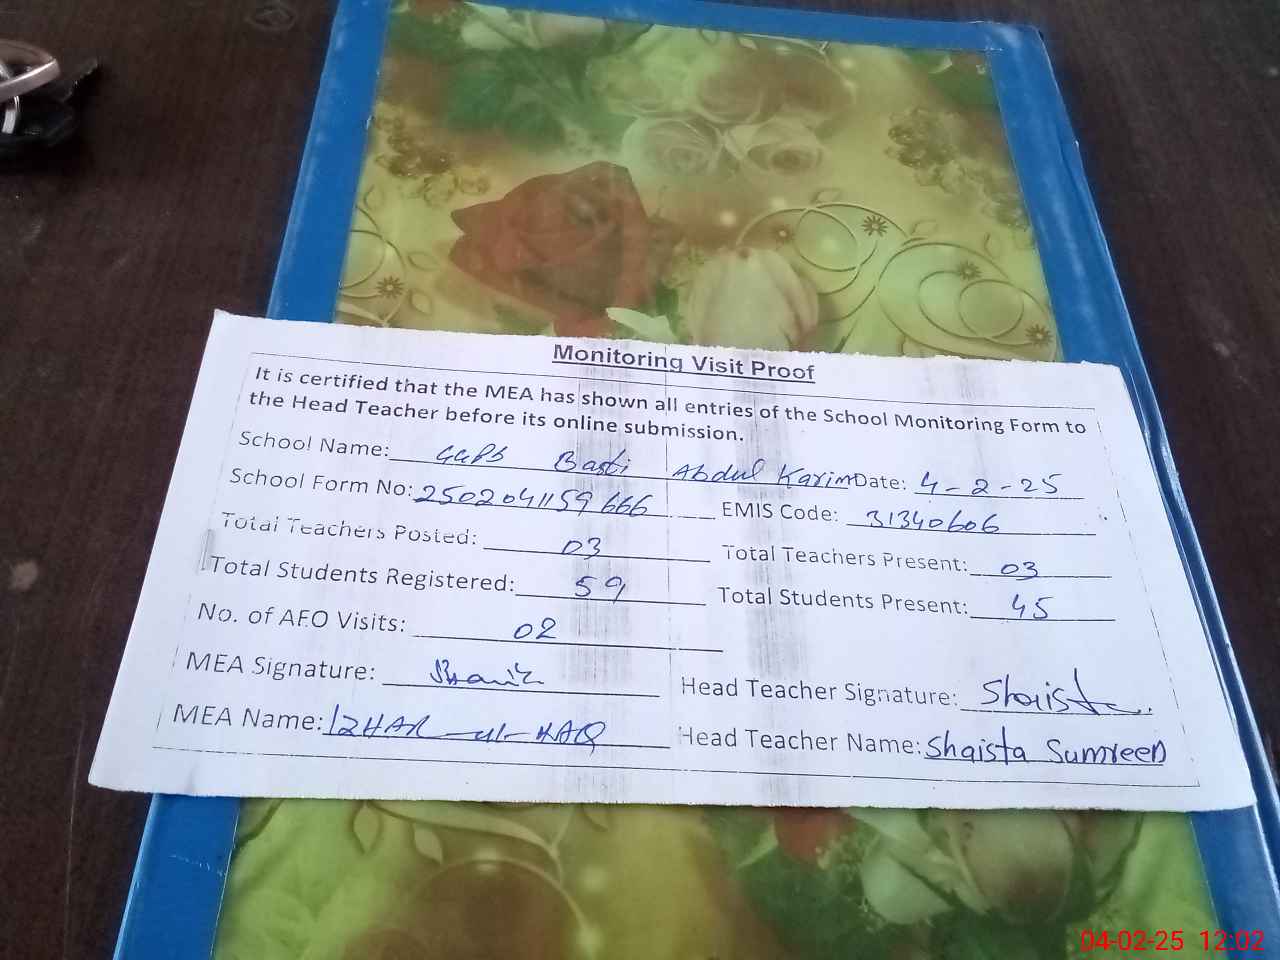 Monitoring Visit Proof
It is certified that the MEA has shown all entries of the School Monitoring Form to
the Head Teacher before its online submission.
School Name: GGPS Basti Abdul Karim Date: 4-2-25
School Form No: 2502041159666 EMIS Code: 31340606
Total Teachers Posted: 03 Total Teachers Present: 03
Total Students Registered: 59 Total Students Present: 45
No. of AEO Visits: 02
MEA Signature: Head Teacher Signature: Shaista
MEA Name: IZHAR-ul-HAQ Head Teacher Name: Shaista Sumreen
04-02-25 12:02